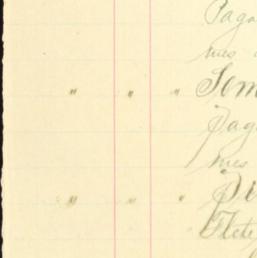 Paga
mes
" " " Sem
Paga
mes
" " "
Flete